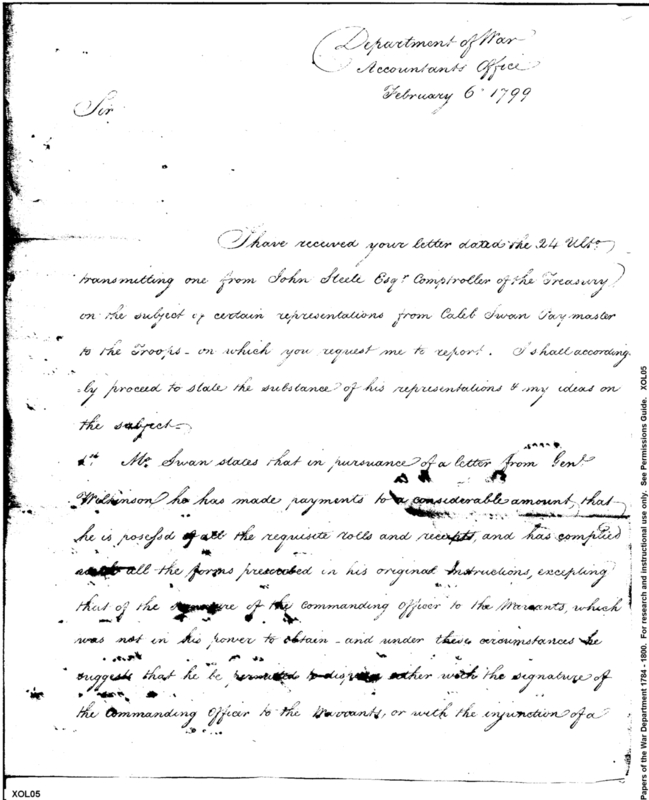 Department of War
Accountants Office
February 6 1799
Sir
I have received your letter dated the 24 Ulto
transmitting one from John Steele Esqr Comptroller of the Treasury
on the subject of certain representations from Caleb Swan Paymaster
to the Troops - on which you request me to report. I shall according-
-ly proceed to state the substance of his representations & my ideas on
the subject -
1st Mr Swan states that in pursuance of a letter from Genl
Wilkinson he has made payments to a considerable amount, that
he is possessd of all the requisite rolls and receipts, and has complied
all the forms prescribed in his original Instructions, excepting
that of the signature of the Commanding Officer to the Warrants, which
was not in his power to obtain - and under these circumstances he
suggests that he be permitted to dispense either with the signature of
the Commanding Officer to the Warrants, or with the injunction of a
XOL05
Papers of the War Department 1784 - 1800. For research and instructional use only. See Permissions Guide. XOL05